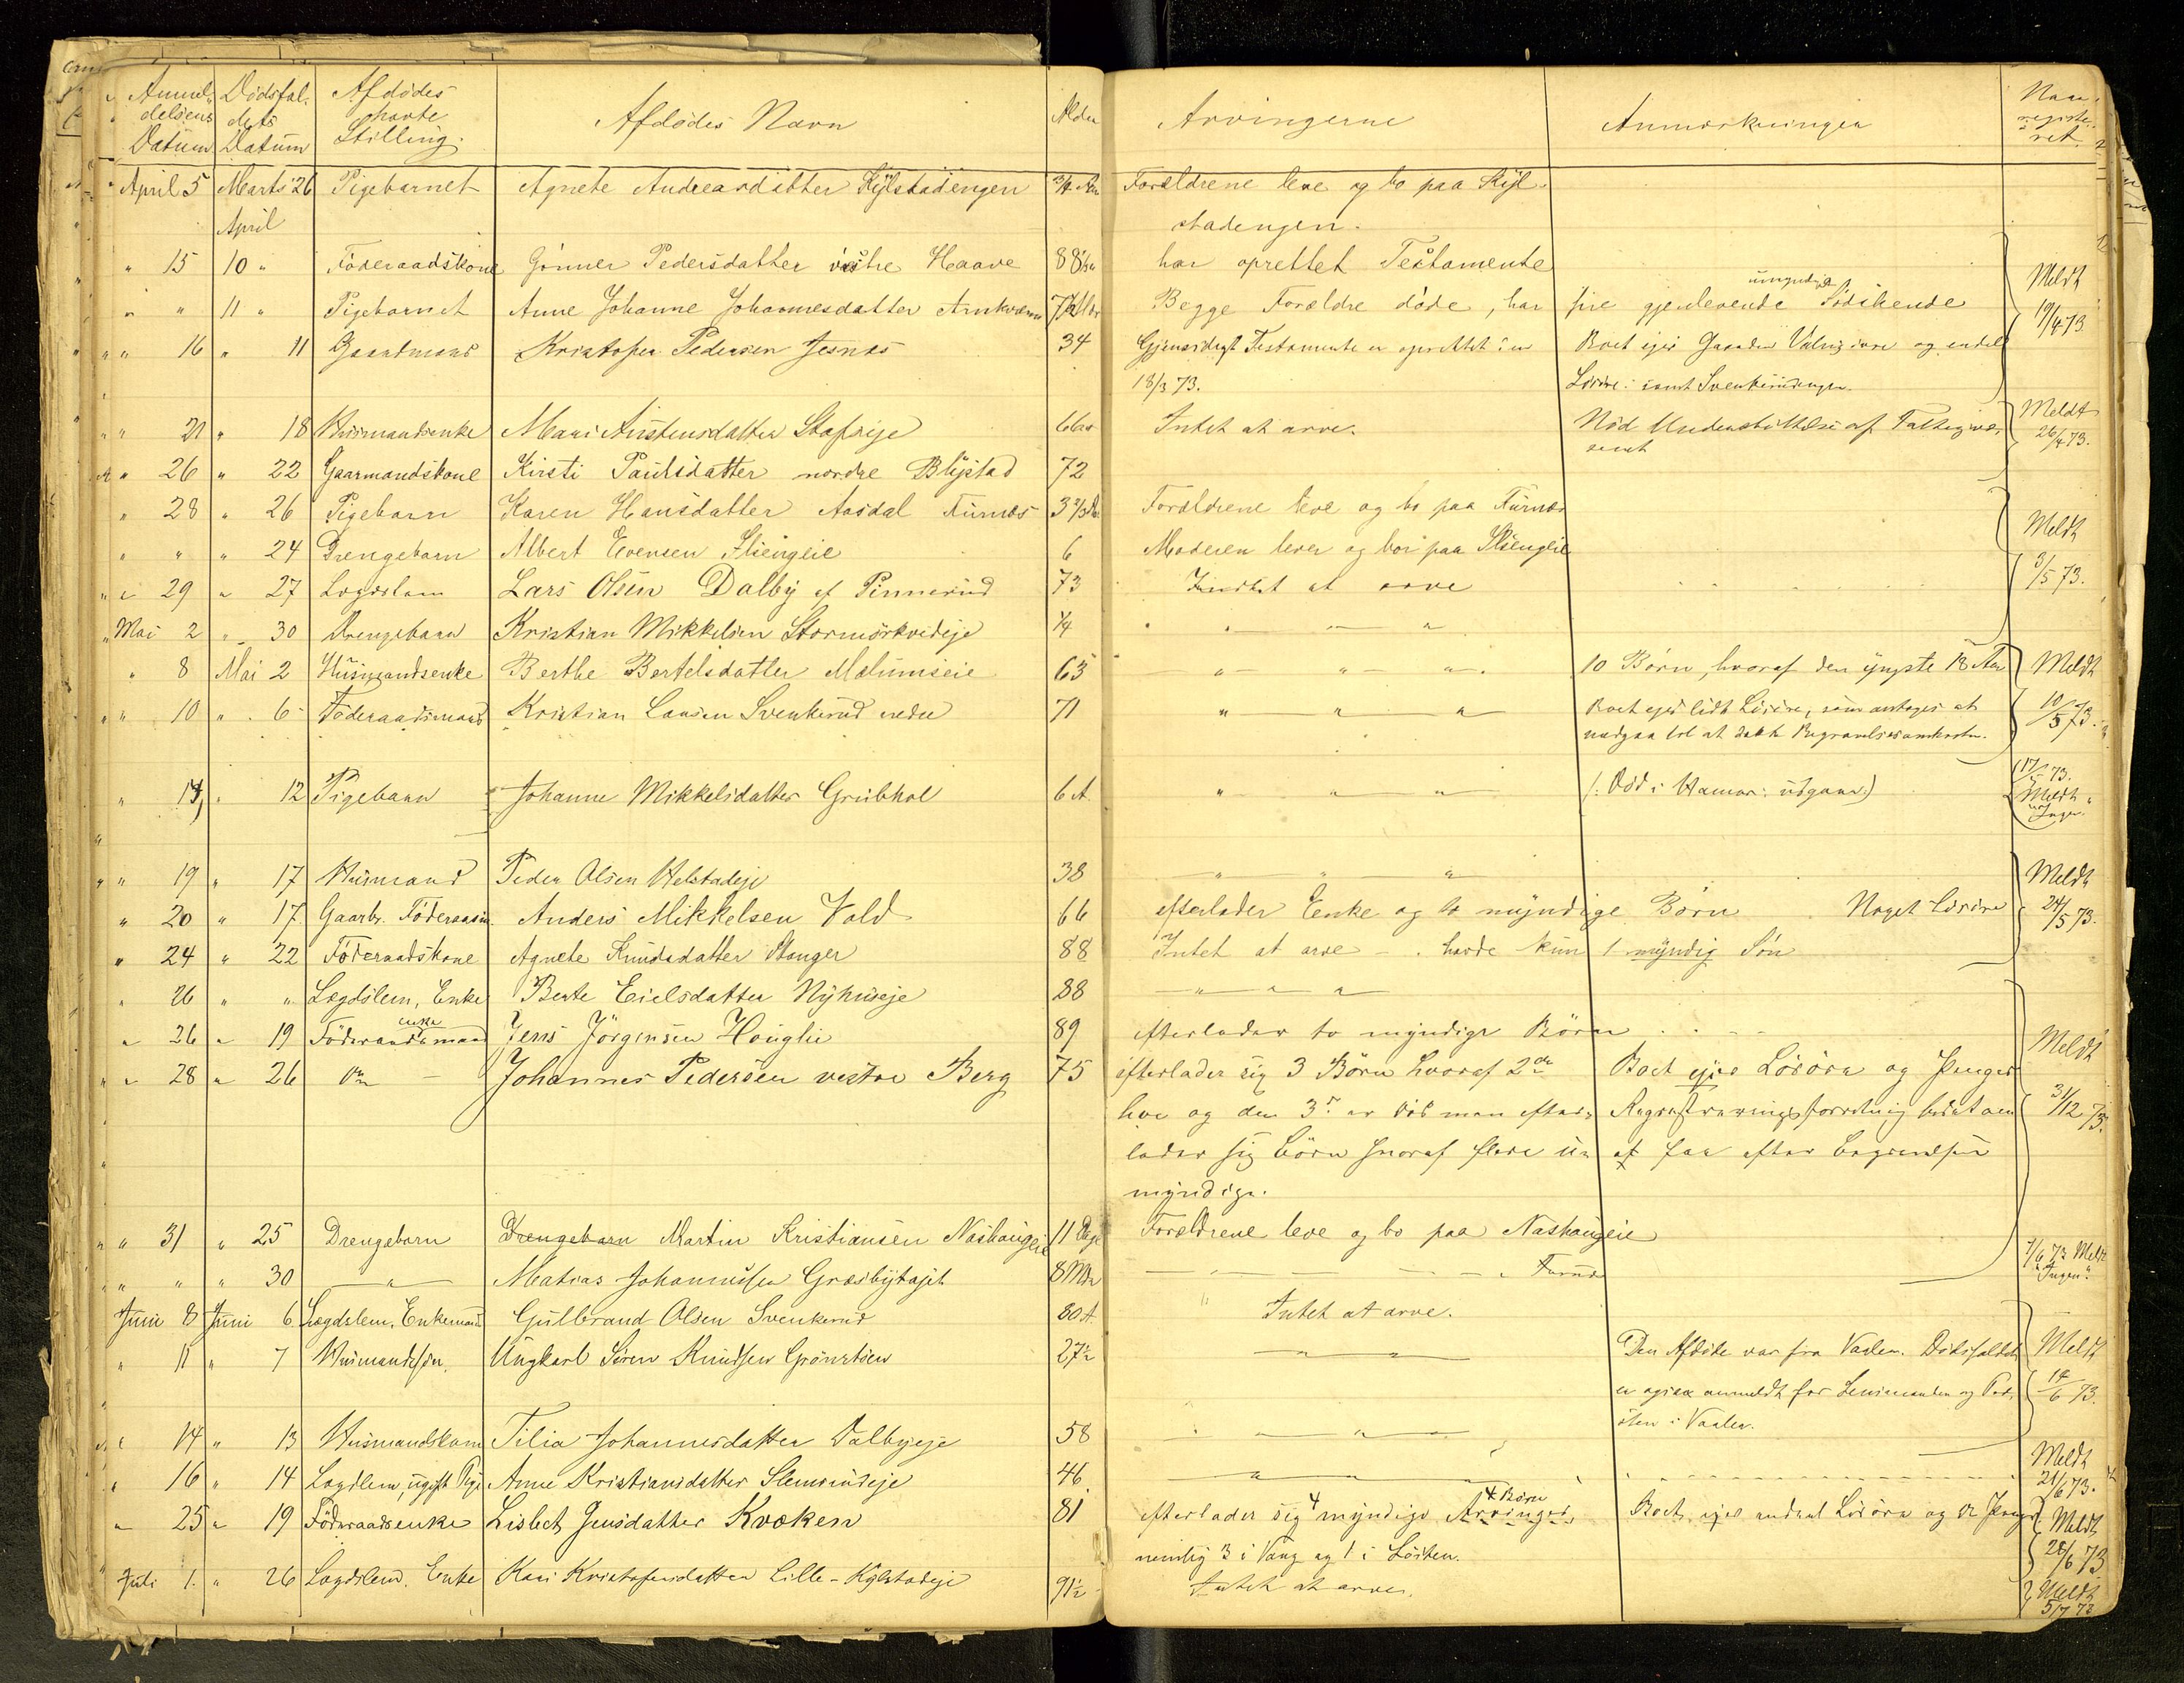 Anmeldelsens Datum Dødsfaldets Datum Afdødes havte Stilling. Afdødes Navn Alder Arvingerne Anmærkninger Naar registeret
April 5 Marts 26 Pigebarnet Agnete Andreasdatter Kylstadengen 3/4 Aar Forældrene leve og bo paa Kyl-
April stadengen.
" 15 10 " Föderaadskone Gønner Pedersdatter vestre Haave 88 har oprettet Testamente Meldt
" " 11 " Pigebarnet Anne Johanne Johannesdatter Arnkværn 7 1/2 Begge Forældre døde, har fire gjenlevende umyndige Södskende 19/4 73
" 16 " 11 Gaardmand Kristofer Pedersen Jesnes 34 Gjensidigt Testamente er oprettet Boet ejer Gaarden og endel
18/3 73. Lösöre samt
" 21 " 18 Husmandsenke Mari Austensdatter Stafseje 66 Intet at arve. Nöd Understöttelse af Fattigvæ- Meldt
senet 26/4 73.
" 26 " 22 Gaarmandskone Kirsti Paulsdatter nordre Blystad 72
" 28 " 26 Pigebarn Karen Hansdatter Aasdal Furnes 3 2/3 Forældrene leve og bo paa Furnes Meldt
" " " 24 Drengebarn Albert Evensen Sliengeie 6 Moderen lever og bor paa Sliengeie
" 29 " 27 Lægdslem Lars Olsen Dalby af Pinnerud 73 Indtet at arve 3/5 73.
" Mai 2 " 30 Drengebarn Kristian Mikkelsen Stormörkvedeje 1/4 " " "
" 8 Mai 2 Husmandsenke Berthe Bertelsdatter Malumseie 63 " " " 10 Børn, hvoraf den yngste 18 Aar Meldt
" 10 " 6 Föderaadsmand Kristian Larsen Svenkerud nedre 71 " " " Boet ejer lidt Lösöre, som antages at 10/5 73.
medgaa til at dække Begravelsesomkostn.
" 14 " 12 Pigebarn Johanne Mikkelsdatter Grubhol 6 A. " " " (: Död i Hamar: udgaar:) 17/5 73. Meldt Ingen.
" 19 " 17 Husmand Peder Olsen Helstadeje 38 " " " Meldt
" 20 " 17 Gaarbr. Föderaadsm. Anders Mikkelsen Vold 66 efterlader Enke og to myndige Børn Noget Lösöre 24/5 73.
" 24 " 22 Föderaadskone Agnete Knudsdatter Stanger 88 Intet at arve - havde kun 1 myndig Søn
" 26 " " Lægdslem, Enke Berte Eielsdatter Nyhuseje 88 " " "
" 26 " 19 Föderaadsenkemand Jens Jörgensen Houglie 89 efterlader to myndige Börn Meldt
" 28 " 26 Do Johannes Pedersen vestre Berg 75 efterlader sig 3 Börn hvoraf 2de Boet ejer Lösöre og Penger
leve og den 3die er död men efter- Registreringsforretning bedst 31/12 73.
lader sig Börn hvoraf flere u- at faa efter begravelsen
myndige.
" 31 " 25 Drengebarn Drengebarn Martin Kristiansen Nashaugeie 11 Dage Forældrene leve og bo paa Nashaugeie
" " " 30 " Matias Johannessen Græsbytajet 8 Mdr " Furnes 7/6 73 Meldt "Ingen".
Juni 8 Juni 6 Lægdslem. Enkemand Gulbrand Olsen Svenkerud 80 A. Intet at arve.
" 11 " 7 Husmandssön. Ungkarl Sören Knudsen Grönstuen 27 1/2 " " Den Afdöde var fra Vaaler. Dödsfaldet Meldt
er ogsaa anmeldt for Lensmanden og Præ- 14/6 73.
sten i Vaaler.
" 14 " 13 Husmandskone Tilia Johannesdatter Dalbyeje 58 " " "
" 16 " 14 Lægdslem, ugift Pige Anne Kristiansdatter Slemsrudeje 46. " " " Meldt 21/6 73.
" 25 " 19 Föderaadsenke Lisbet Jensdatter Kvæken 81 efterlader sig 4 myndige Arvinger 4 Börn Boet ejer endeel Lösöre og Penger Meldt
nemlig 3 i Vang og 1 i Löiten. 28/6 73
Juli 1. " 26 Lægdslem. Enke Kari Kristofersdatter Lille-Kylstadeje 91 1/2 Intet at arve. Meldt 5/7 73